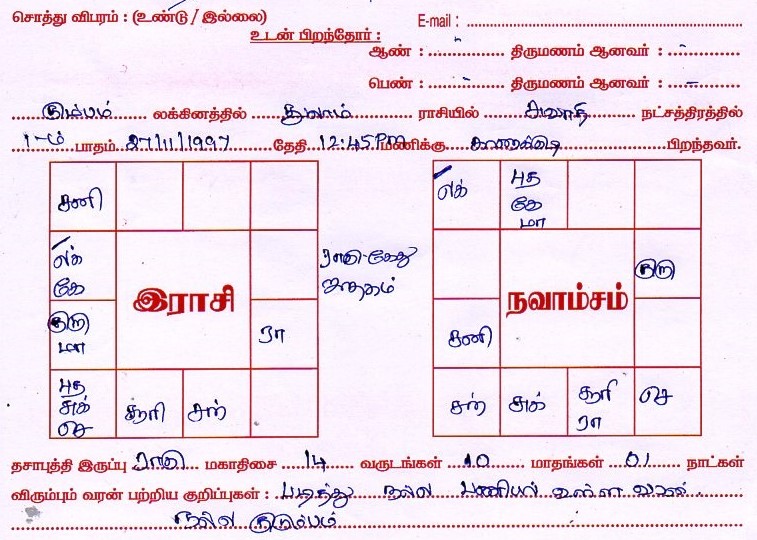 சொத்து விபரம் : (உண்டு / இல்லை)
E-mail :
உடன் பிறந்தோர் :
ஆண் : திருமணம் ஆனவர் : -
பெண் : திருமணம் ஆனவர் : -
கும்பம் லக்கினத்தில் துலாம் ராசியில் சுவாதி நட்சத்திரத்தில்
1-ம் பாதம் 27/11/1997 தேதி 12:45 PM மணிக்கு பிறந்தவர்.
சனி
ல/
கே
குரு
மா
புத
சுக்
செ
சூரி
சந்
ரா
இராசி
ராகு-கேது
ஜாதகம்
ல/
புத
கே
மா
குரு
சனி
சந்
சுக்
சூரி
ரா
செ
நவாம்சம்
தசாபுத்தி இருப்பு ராகு மகாதிசை 14 வருடங்கள் 10 மாதங்கள் 01 நாட்கள்
விரும்பும் வரன் பற்றிய குறிப்புகள் : படித்து நல்ல பணியில் உள்ள வரன்
நல்ல குடும்பம்